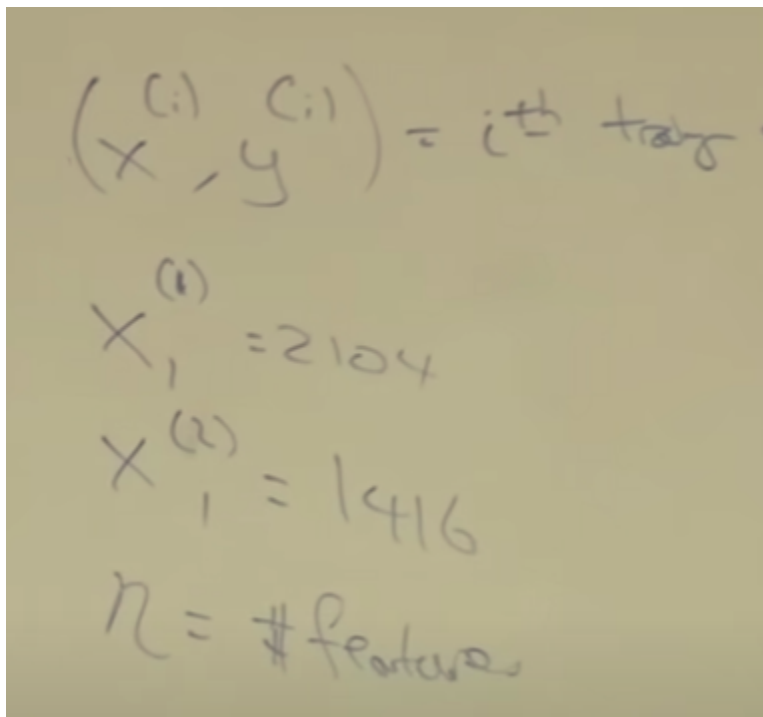 (x^(i), y^(i)) = i^th
x_1^(1) = 2104
x_1^(2) = 1416
n = # features